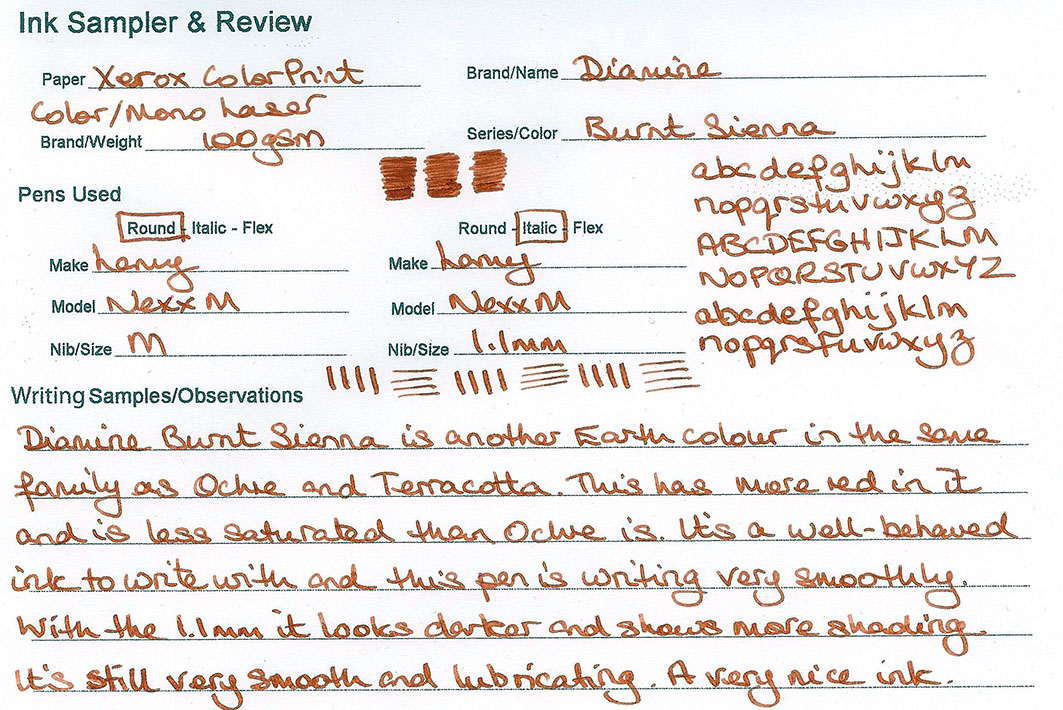 Ink Sampler & Review
Paper Xerox ColorPrint
Color/Mono Laser
Brand/Weight 100gsm
Brand/Name Diamine
Series/Color Burnt Sienna
Pens Used
Round - Italic - Flex
Make Lamy
Model Nexx M
Nib/Size M
Round - Italic - Flex
Make Lamy
Model Nexx M
Nib/Size 1.1mm
abcdefghijklm
nopqrstuvwxyz
ABCDEFGHIJKLM
NOPQRSTUVWXYZ
abcdefghijklm
nopqrstuvwxyz
Writing Samples/Observations
Diamine Burnt Sienna is another Earth colour in the same
family as Ochre and Terracotta. This has more red in it
and is less saturated than Ochre is. It's a well-behaved
ink to write with and this pen is writing very smoothly.
With the 1.1mm it looks darker and shows more shading.
It's still very smooth and lubricating. A very nice ink.